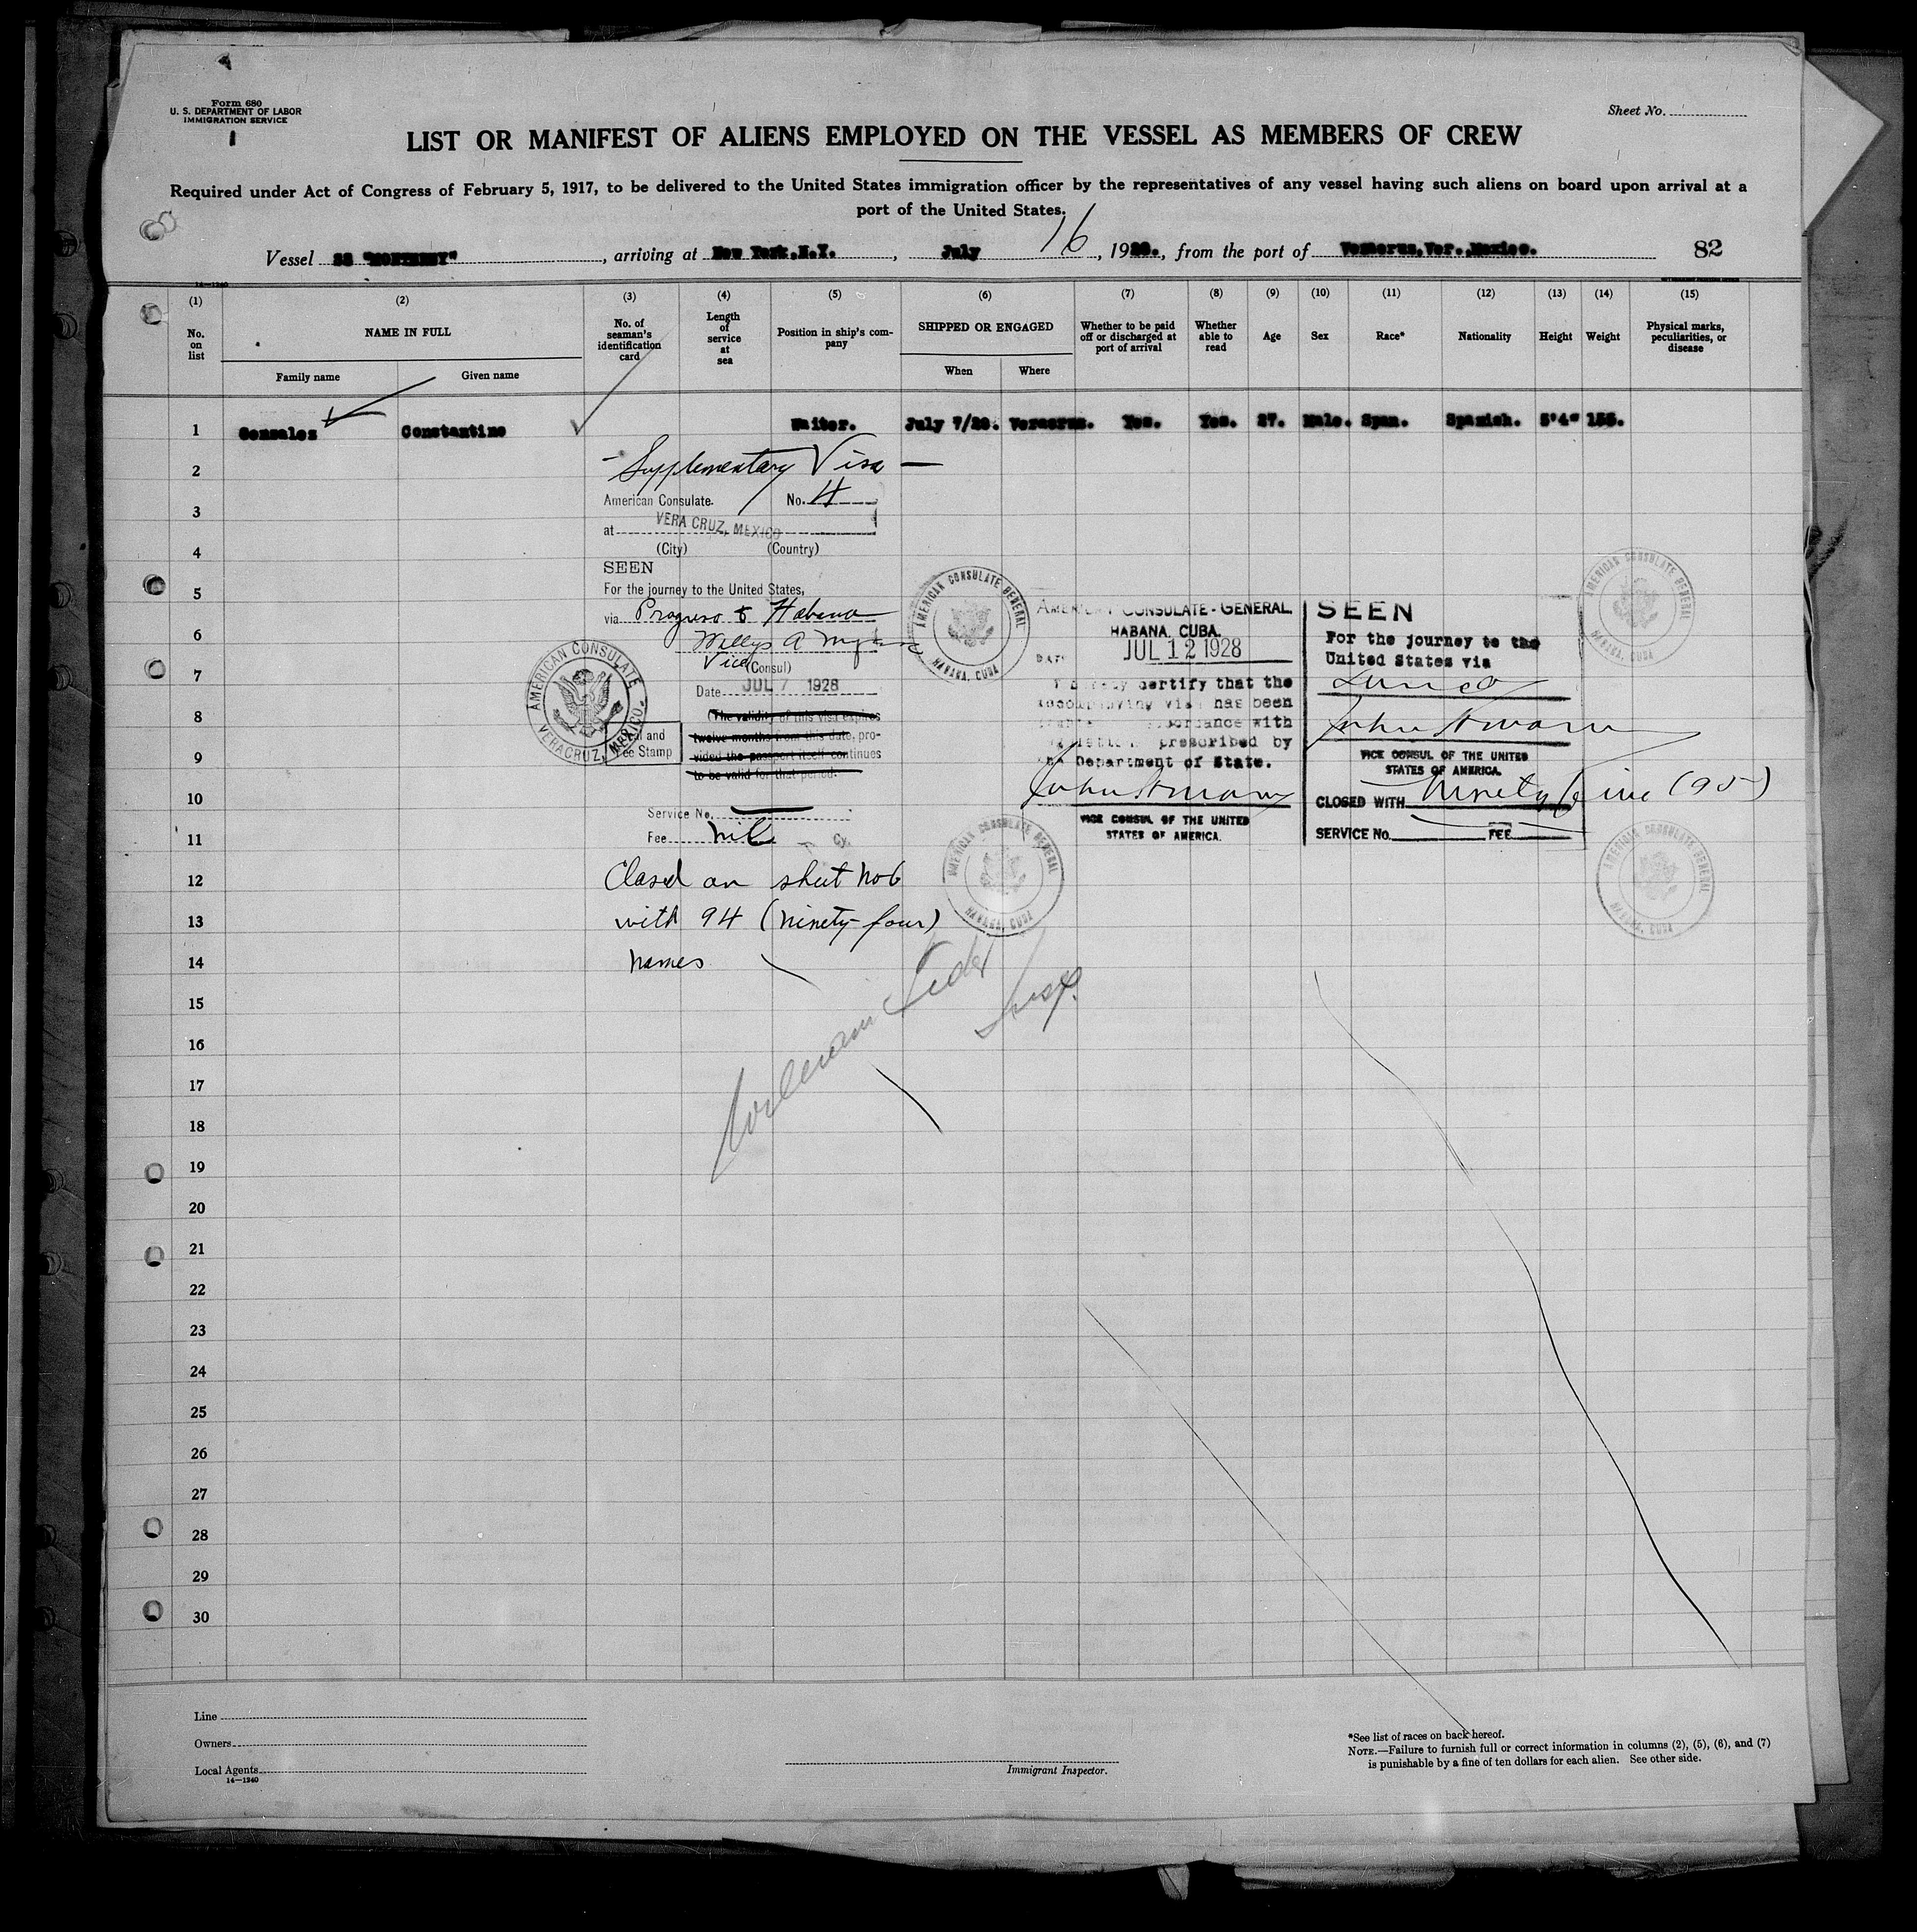 Form 680
U. S. DEPARTMENT OF LABOR
IMMIGRATION SERVICE
Sheet No.
LIST OR MANIFEST OF ALIENS EMPLOYED ON THE VESSEL AS MEMBERS OF CREW
Required under Act of Congress of February 5, 1917, to be delivered to the United States immigration officer by the representatives of any vessel having such aliens on board upon arrival at a
port of the United States.
Vessel SS "MONTEREY", arriving at New York,N.Y., July 16, 1928., from the port of Veracruz,Ver.,Mexico. 82
14—1240
(1) (2) (3) (4) (5) (6) (7) (8) (9) (10) (11) (12) (13) (14) (15)
No. on list
NAME IN FULL
Family name Given name
No. of seaman's identification card
Length of service at sea
Position in ship's company
SHIPPED OR ENGAGED
When Where
Whether to be paid off or discharged at port of arrival
Whether able to read
Age
Sex
Race*
Nationality
Height
Weight
Physical marks, peculiarities, or disease
1 Gonzalez Constantino Waiter. July 7/28. Veracruz. Yes. Yes. 27. Male. Span. Spanish. 5'4" 155.
2
3
4
5
6
7
8
9
10
11
12
13
14
15
16
17
18
19
20
21
22
23
24
25
26
27
28
29
30
- Supplementary Visa -
American Consulate. No. 4
at VERA CRUZ, MEXICO
(City) (Country)
SEEN
For the journey to the United States,
via Progreso & Habana
Willys A
Vice (Consul)
Date JUL 7 1928
(The validity of this visa expires
twelve months from this date, pro-
vided the passport itself continues
to be valid for that period.
AMERICAN CONSULATE
VERACRUZ, MEXICO.
Seal and
Fee Stamp
Service No.
Fee nil
Closed on sheet No 6
with 94 (ninety-four)
names
AMERICAN CONSULATE GENERAL
HABANA, CUBA
AMERICAN CONSULATE-GENERAL
HABANA, CUBA.
DATE JUL 12 1928
I hereby certify that the
accompanying visa has been
granted accordance with
prescribed by
the Department of State.
VICE CONSUL OF THE UNITED
STATES OF AMERICA.
AMERICAN CONSULATE GENERAL
HABANA, CUBA
SEEN
For the journey to the
United States via
Direct
VICE CONSUL OF THE UNITED
STATES OF AMERICA.
CLOSED WITH Ninety five (95)
SERVICE No. FEE
AMERICAN CONSULATE GENERAL
HABANA, CUBA
AMERICAN CONSULATE GENERAL
HABANA, CUBA
William
Insp.
Line
Owners
Local Agents
14—1240
Immigrant Inspector.
*See list of races on back hereof.
NOTE.—Failure to furnish full or correct information in columns (2), (5), (6), and (7)
is punishable by a fine of ten dollars for each alien. See other side.